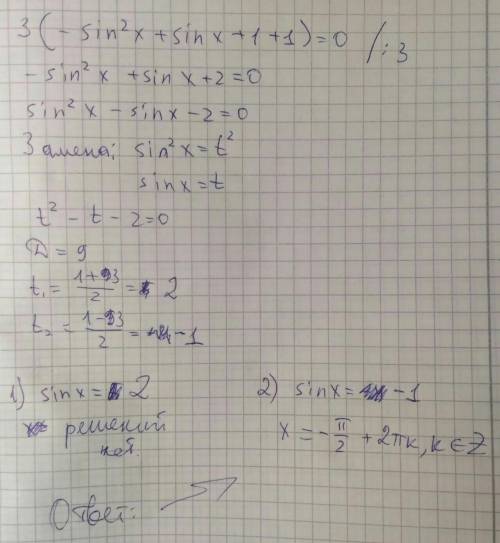 3(-sin²x+sinx+1+1)=0 /:3
-sin²x+sinx+2=0
sin²x-sinx-2=0
Замена: sin²x=t²
sinx=t
t²-t-2=0
D=9
t₁=(1+3)/2=2
t₂=(1-3)/2=-1
1) sinx=2
решений
нет.
2) sinx=-1
x=-π/2+2πk, k∈Z
Ответ: